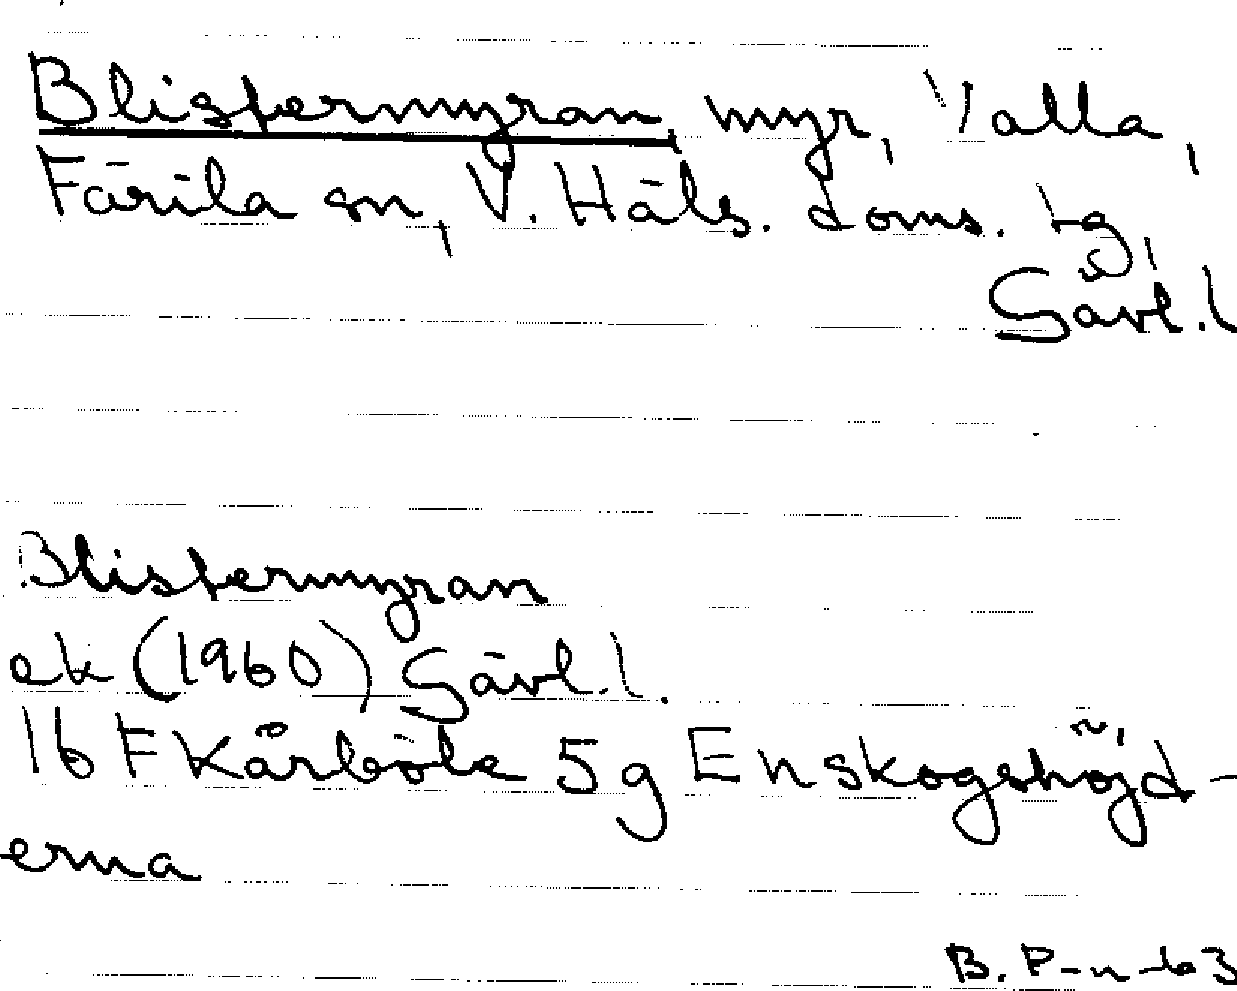 Blistermyran, myr, Valla,
Färila sn, V. Häls. doms. tg,
Gävl. l
Blistermyran
ek (1960) Gävl. l.
16 F Kårböle 5 g Enskogshöjd-
erna
B. P-n 63